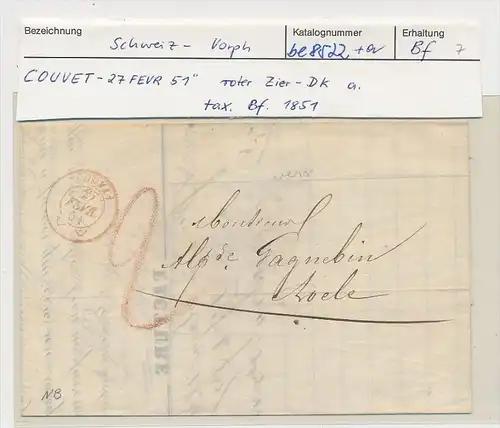 Bezeichnung Katalognummer Erhaltung
Schweiz - Vorph be8522 + ar Bf 7
COUVET - 27 FEVR 51" roter Zier - DK a.
tax. Bf. 1851
COUVET
27
FEVR
51
2
Monsieur
Alp.de Gagnebin
Locle
FACTURE
NB